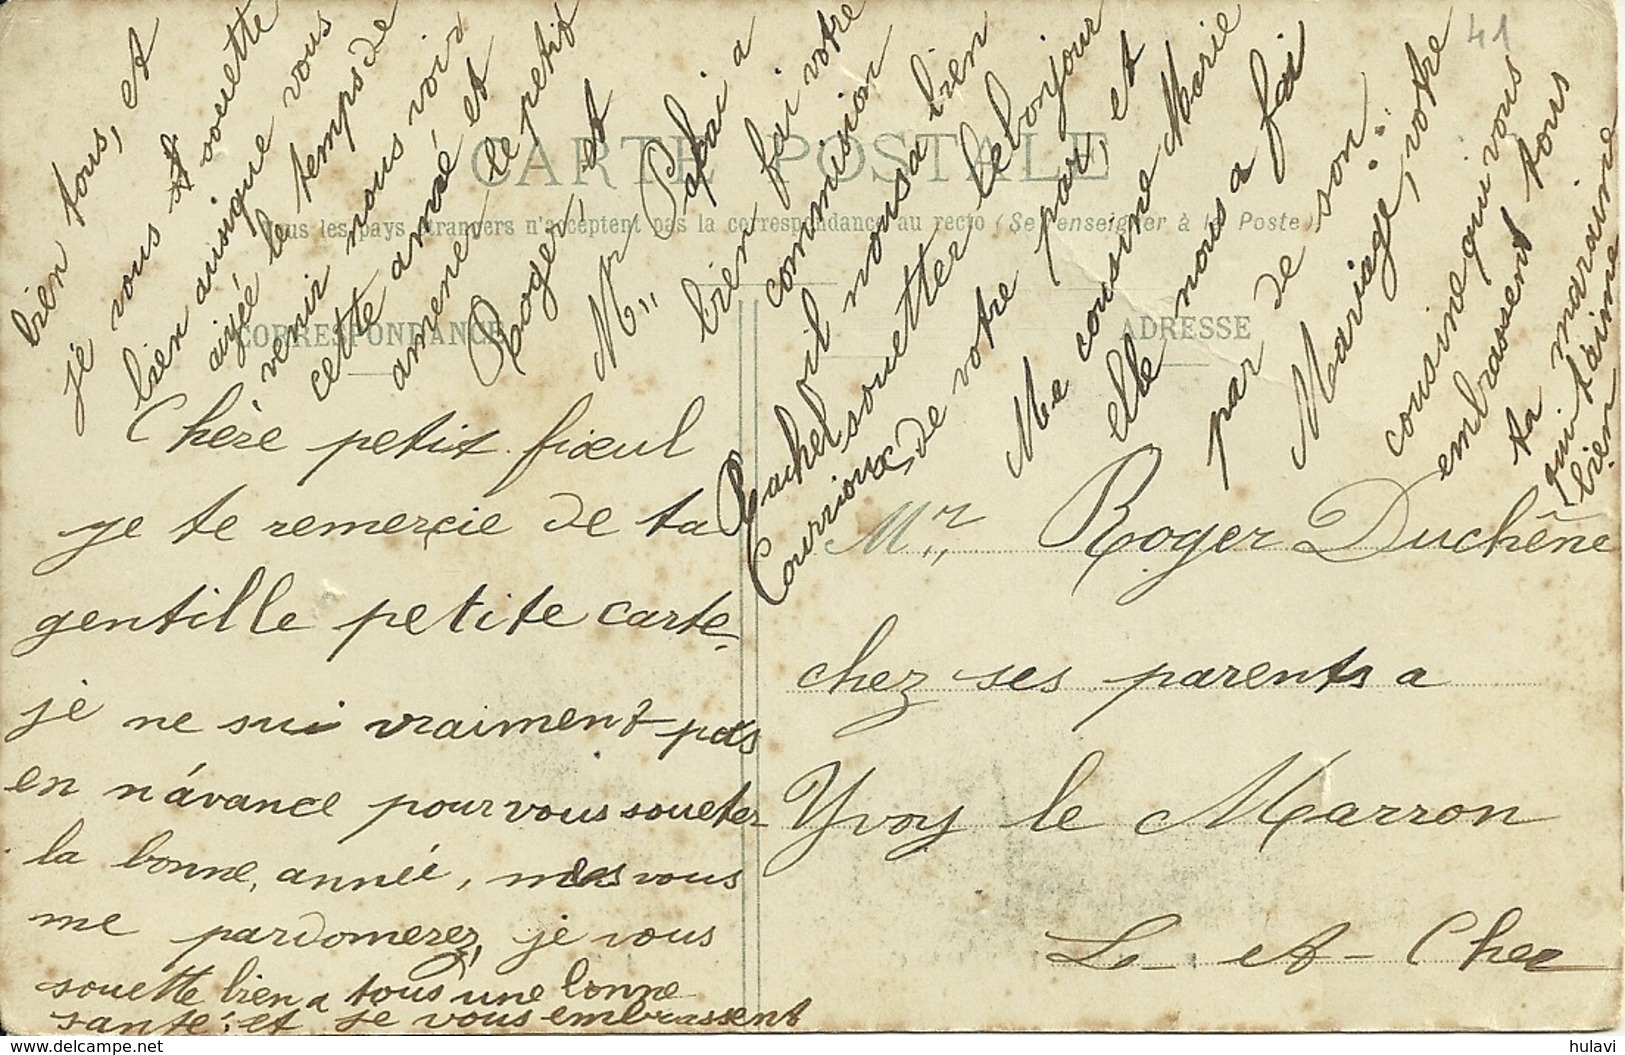 41
CARTE POSTALE
Tous les pays étrangers n'acceptent pas la correspondance au recto (Se renseigner à la Poste)
CORRESPONDANCE
ADRESSE
Chère petit fieul
je te remercie de ta
gentille petite carte
je ne sui vraiment pas
en n'avance pour vous soueter
la bonne année, mes vous
me pardomerez, je vous
souette bien a tous une bonne
santé: et je vous embrassent
bien tous, et
je vous souette
bien ausique vous
aiyée le temps de
venir nous voir
cette anné et
amener le petit
Roger, et
Mr Papai a
bien fai votre
commision
il nousa bien
souetter le bonjour
de votre par, et
Me cousine Marie
elle nous a fai
par de son
Mariage, votre
cousine qui vous
embrassent tous
ta maraine
qui t'aime
bien
Rachel
Courrioux
Mr Roger Duchêne
chez ses parents a
Yvoy le Marron
L- et- Cher
hulavi
www.delcampe.net